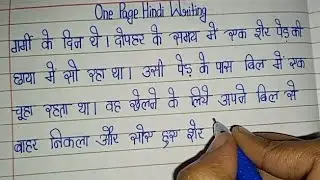 One Page Hindi Writing
गर्मी के दिन थे। दोपहर के समय में एक शेर पेड़ की
छाया में सो रहा था। उसी पेड़ के पास बिल में एक
चूहा रहता था। वह खेलने के लिये अपने बिल से
बाहर निकला और सोए हुए शेर